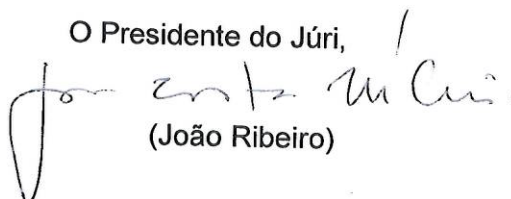 O Presidente do Júri,
(João Ribeiro)